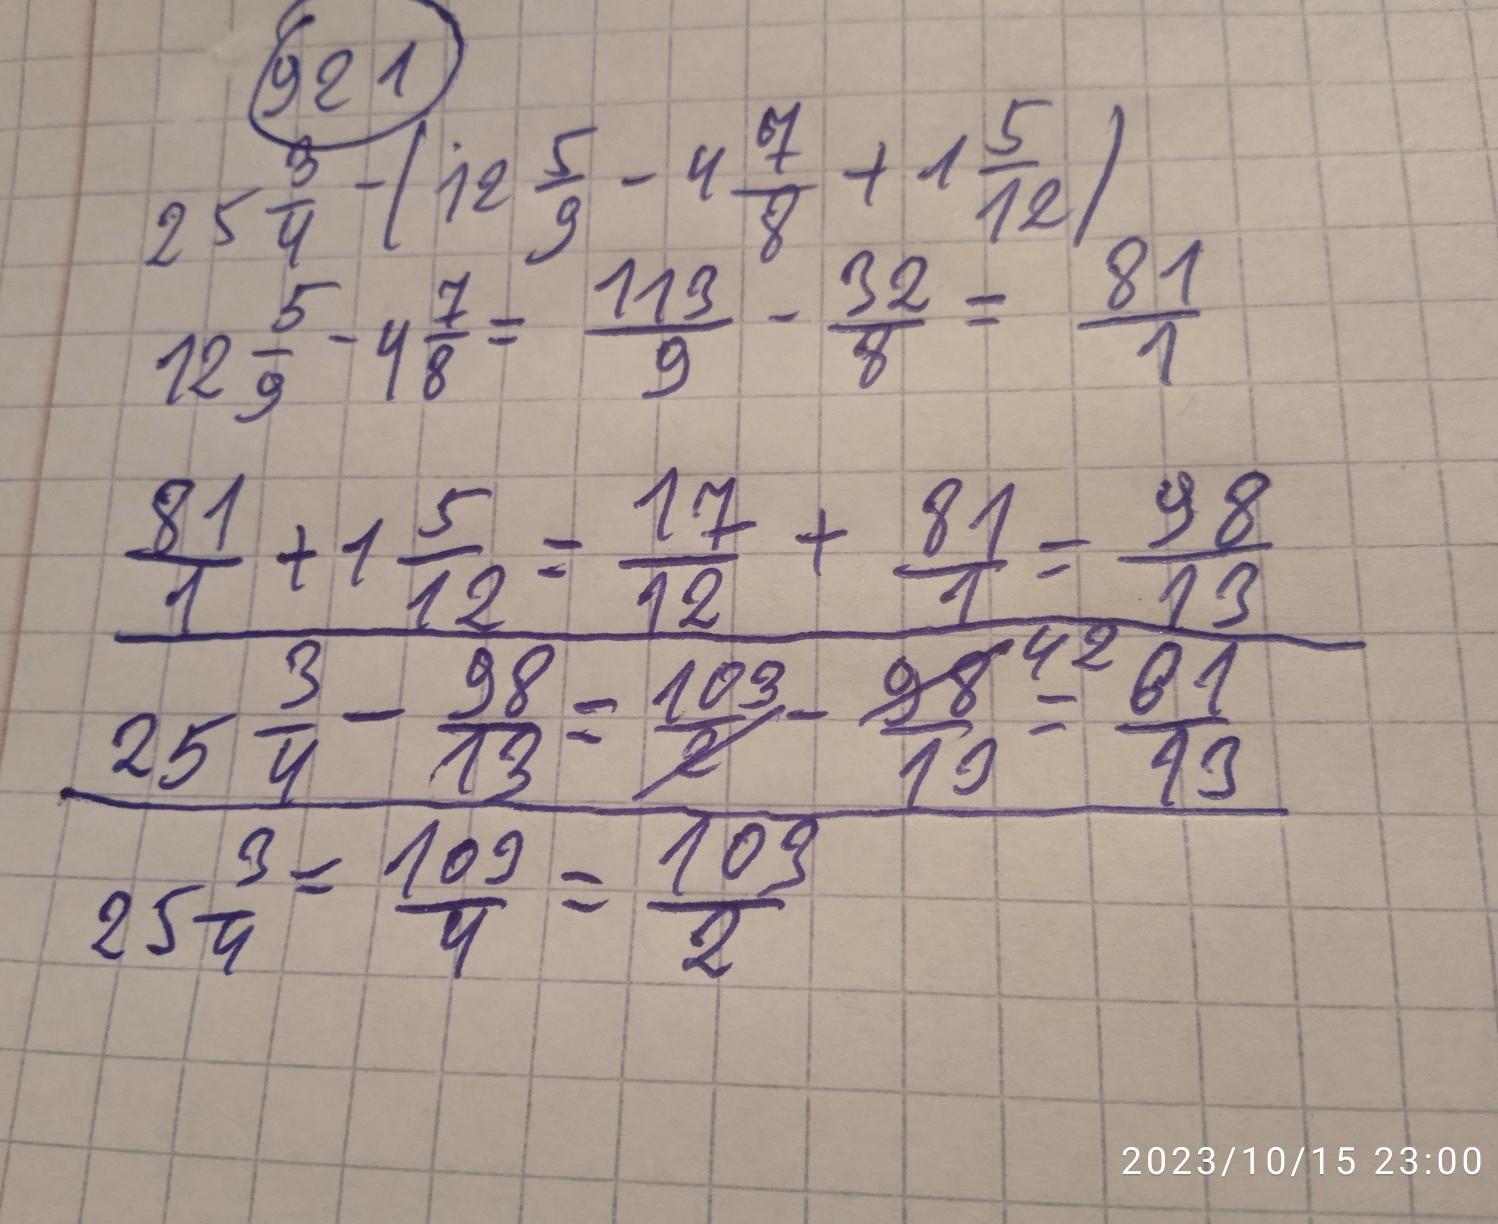 921
25 3/4 - (12 5/9 - 4 7/8 + 1 5/12)
12 5/9 - 4 7/8 = 113/9 - 32/8 = 81/1
81/1 + 1 5/12 = 17/12 + 81/1 = 98/13
25 3/4 - 98/13 = 103/2 - 98/13 42 = 61/13
25 3/4 = 103/4 = 103/2
2023/10/15 23:00